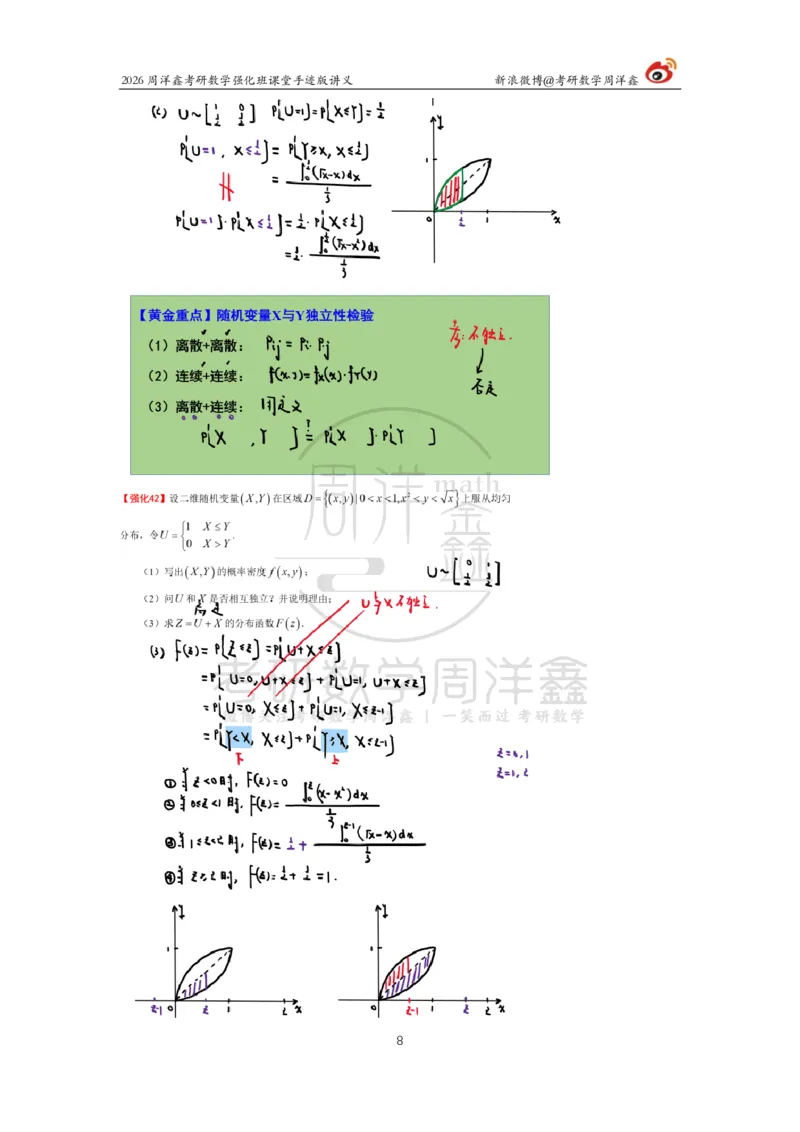 2026 周洋鑫考研数学强化班课堂手迹版讲义 新浪微博@考研数学周洋鑫
(2) U~[1 0; 1/2 1/2] P{U=1}=P{X≤Y}=1/2
P{U=1, X≤1/2}=P{Y≥X, X≤1/2}
= ∫₀^{1/2}(√x-x)dx / (1/3)
P{U=1}·P{X≤1/2}=1/2·P{X≤1/2}
=1/2· ∫₀^{1/2}(√x-x²)dx / (1/3)
y
1
0 1/2 1 x
【黄金重点】随机变量X与Y独立性检验
(1)离散+离散: Pij = Pi· P·j
考:不独立.
(2)连续+连续: f(x,y)=fX(x)·fY(y)
否定
(3)离散+连续: 用定义
P{X , Y } ?= P{X }·P{Y }
周洋鑫 math
【强化42】设二维随机变量(X,Y)在区域D={(x,y)|0<x<1,x²<y<√x}上服从均匀
分布,令U={1 X≤Y
0 X>Y.
(1)写出(X,Y)的概率密度f(x,y);
U~[0 1; 1/2 1/2]
(2)问U和X是否相互独立?并说明理由;
否定
U与X不独立.
(3)求Z=U+X的分布函数F(z).
(3) F(z)=P{Z≤z}=P{U+X≤z}
=P{U=0, U+X≤z}+P{U=1, U+X≤z}
考研数学周洋鑫
=P{U=0, X≤z}+P{U=1, X≤z-1}
微博关注考研数学周洋鑫 | 一笑而过 考研数学
=P{Y<X, X≤z}+P{Y≥X, X≤z-1}
下 上
z=0,1
z=1,2
①当 z<0时, F(z)=0
②当 0≤z<1时, F(z)= ∫₀^z(x-x²)dx / (1/3)
③当 1≤z<2时, F(z)=1/2+ ∫₀^{z-1}(√x-x)dx / (1/3)
④当 z≥2时, F(z)=1/2+1/2=1.
y
1
z-1 0 z 1 2 x
y
1
0 z-1 1 z 2 x
8